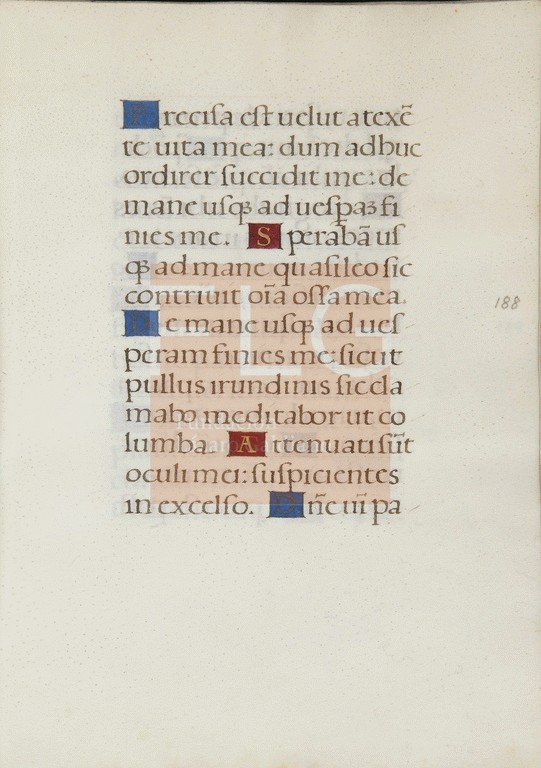 Precisa est uelut a texē
te uita mea: dum adhuc
ordirer succidit me: de
mane usqꝫ ad uespaꝫ fi
nies me. Sperabā us
qꝫ ad mane quasi leo sic
contriuit oīa ossa mea.
De mane usqꝫ ad ues
peram finies me: sicut
pullus irundinis sic cla
mabo meditabor ut co
lumba. Attenuati sūt
oculi mei: suspicientes
in excelso. Dn̄e uī pa
188
FLG
Fundación